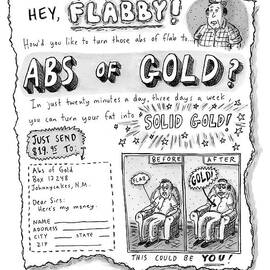 HEY, FLABBY!
How'd you like to turn those abs of flab to...
ABS OF GOLD?
In just twenty minutes a day, three days a week
you can turn your fat into
SOLID GOLD!
JUST SEND
$19.95 TO:
Abs of Gold
Box 17248
Johnnycakes, N.M.
Dear Sirs:
Here's my money.
NAME
ADDRESS
CITY STATE
ZIP
BEFORE
FLAB
AFTER
GOLD!
THIS COULD BE YOU!